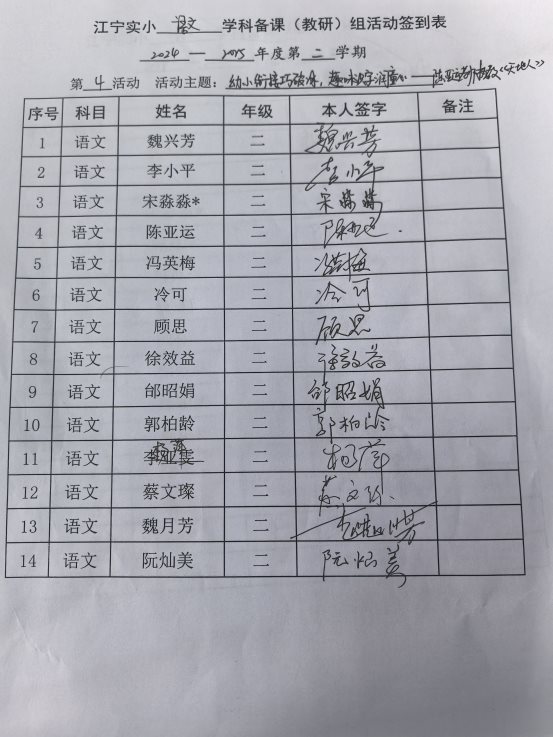 江宁实小 语文 学科备课（教研）组活动签到表
2024 — 2025 年度第 二 学期
第 4 活动 活动主题：幼小衔接巧破冰，趣味识字润童心——
序号 科目 姓名 年级 本人签字 备注
1 语文 魏兴芳 二 魏兴芳
2 语文 李小平 二 李小平
3 语文 宋淼淼* 二 宋淼淼
4 语文 陈亚运 二 陈亚运
5 语文 冯英梅 二 冯英梅
6 语文 冷可 二 冷可
7 语文 顾思 二 顾思
8 语文 徐效益 二 徐效益
9 语文 邰昭娟 二 邰昭娟
10 语文 郭柏龄 二 郭柏龄
11 语文 二 杨萍
12 语文 蔡文璨 二 蔡文璨
13 语文 魏月芳 二
14 语文 阮灿美 二 阮灿美